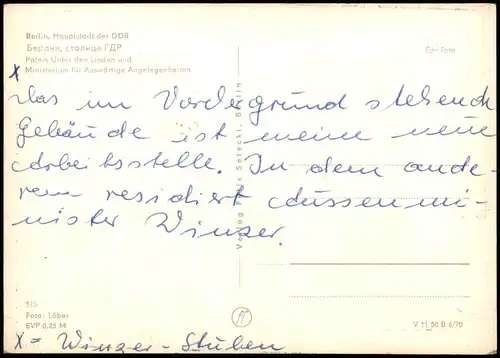 Berlin, Hauptstadt der DDR
Берлин, столица ГДР
Palais Unter den Linden und
x Ministerium für Auswärtige Angelegenheiten
Echt Foto
Das im Vordergrund stehende
Gebäude ist meine neue
Arbeitsstelle. In dem ande-
ren residiert Aussenmi-
nister Winzer.
Verlag Felix Setecki, Berlin
515
Foto: Löber
EVP 0,25 M
V 11 50 B 6/70
x = Winzer-Stuben